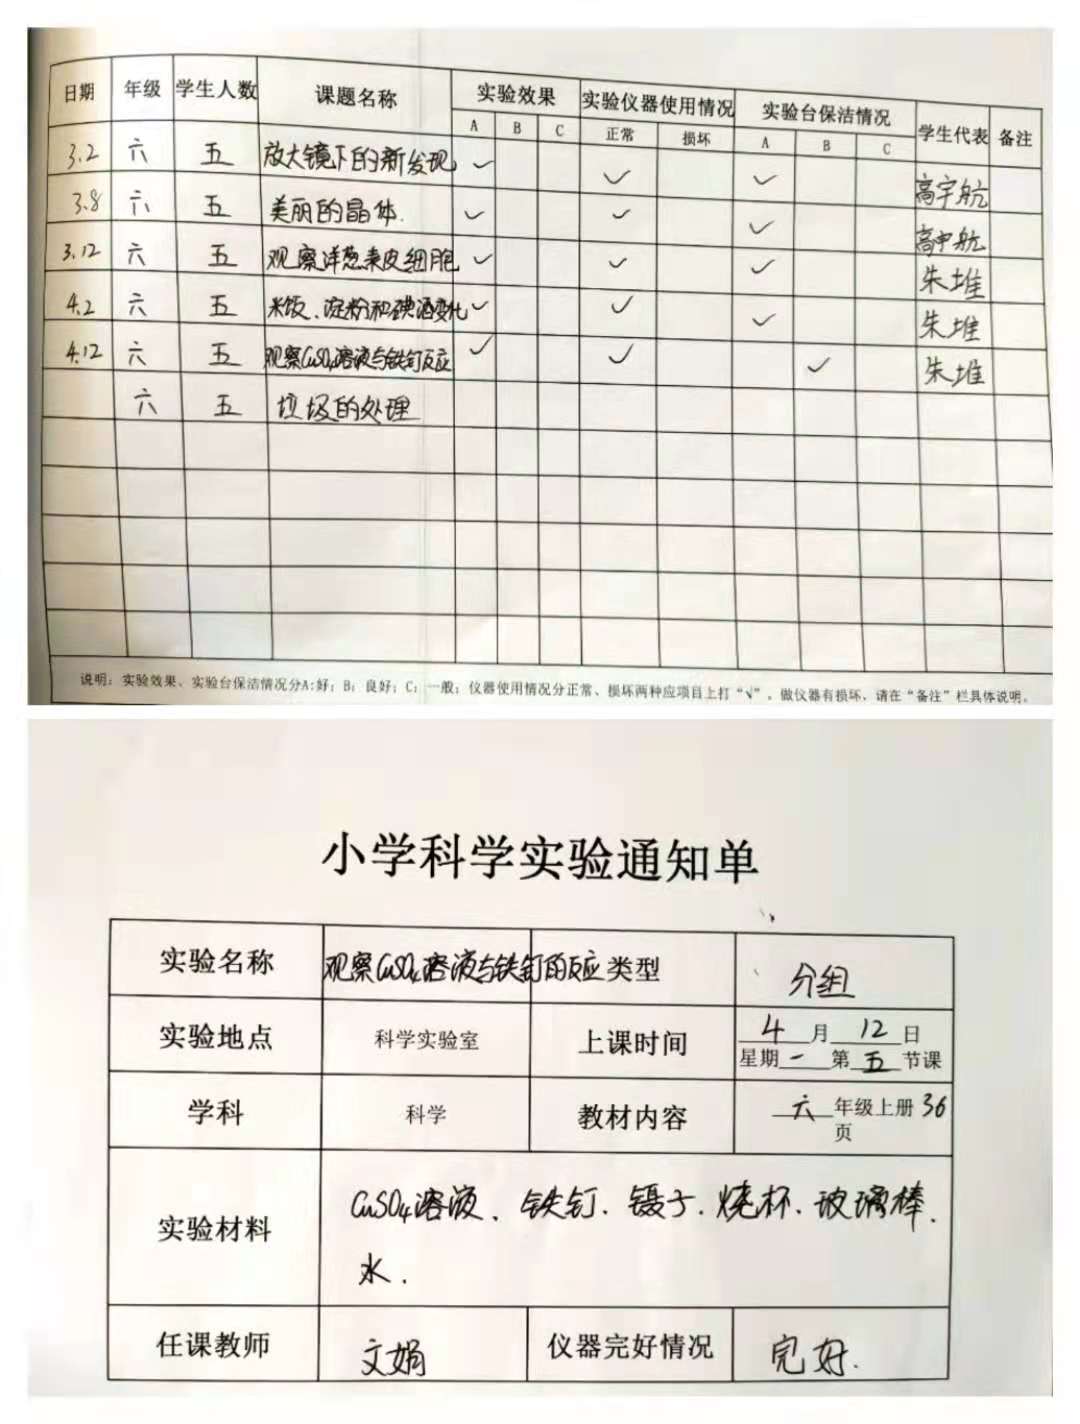 日期 年级 学生人数 课题名称 实验效果 实验仪器使用情况 实验台保洁情况 学生代表 备注
A B C 正常 损坏 A B C
3.2 六 五 放大镜下的新发现 ✓ ✓ ✓ 高宇航
3.8 六 五 美丽的晶体. ✓ ✓ ✓ 高宇航
3.12 六 五 观察洋葱表皮细胞 ✓ ✓ ✓ 朱堆
4.2 六 五 米饭、淀粉和碘酒变化 ✓ ✓ ✓ 朱堆
4.12 六 五 观察CuSO4溶液与铁钉反应 ✓ ✓ ✓ 朱堆
六 五 垃圾的处理
说明：实验效果、实验台保洁情况分A:好；B：良好；C：一般；仪器使用情况分正常、损坏两种应项目上打“√”。做仪器有损坏，请在“备注”栏具体说明。
小学科学实验通知单
实验名称 观察CuSO4溶液与铁钉的反应 类型 分组
实验地点 科学实验室 上课时间 4月12日
星期一 第五节课
学科 科学 教材内容 六年级上册36
页
实验材料 CuSO4溶液、铁钉.镊子.烧杯.玻璃棒.
水.
任课教师 文娟 仪器完好情况 完好.